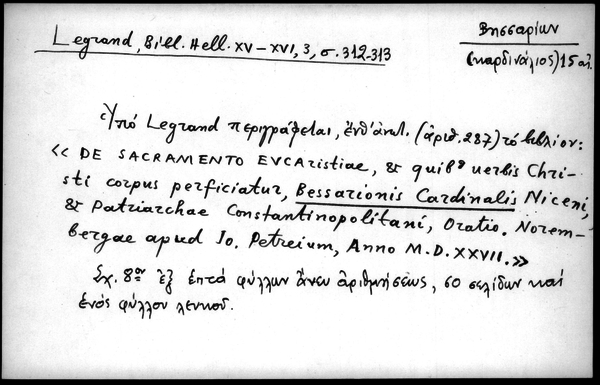 Legrand, Bibl. Hell. XV–XVI, 3, σ. 312-313
Βησσαρίων
(καρδινάλιος) 15 αἰ.
Ὑπό Legrand περιγράφεται, ἐνθ' ἀνωτ. (ἀριθ. 287) τό βιβλίον:
« DE SACRAMENTO EVCAristiae, & quibꝰ uerbis Chri-
sti corpus perficiatur, Bessarionis Cardinalis Niceni,
& Patriarchae Constantinopolitani, Oratio. Norem-
bergae apud Jo. Petreium, Anno M.D.XXVII. »
Σχ. 8ον ἐξ ἑπτά φύλλων ἄνευ ἀριθμήσεως, 60 σελίδων καί
ἑνός φύλλου λευκοῦ.